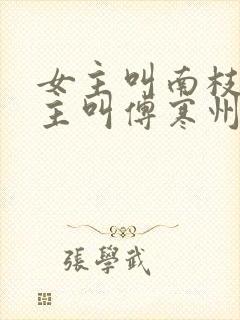 女主叫南枝
主叫傅寒州
張學武